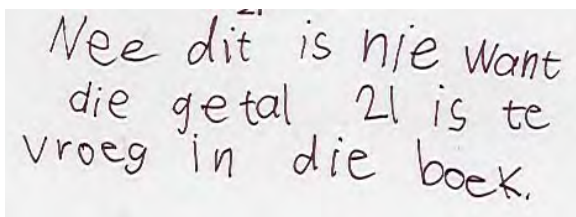 Nee dit is nie want
die getal 21 is te
vroeg in die boek.